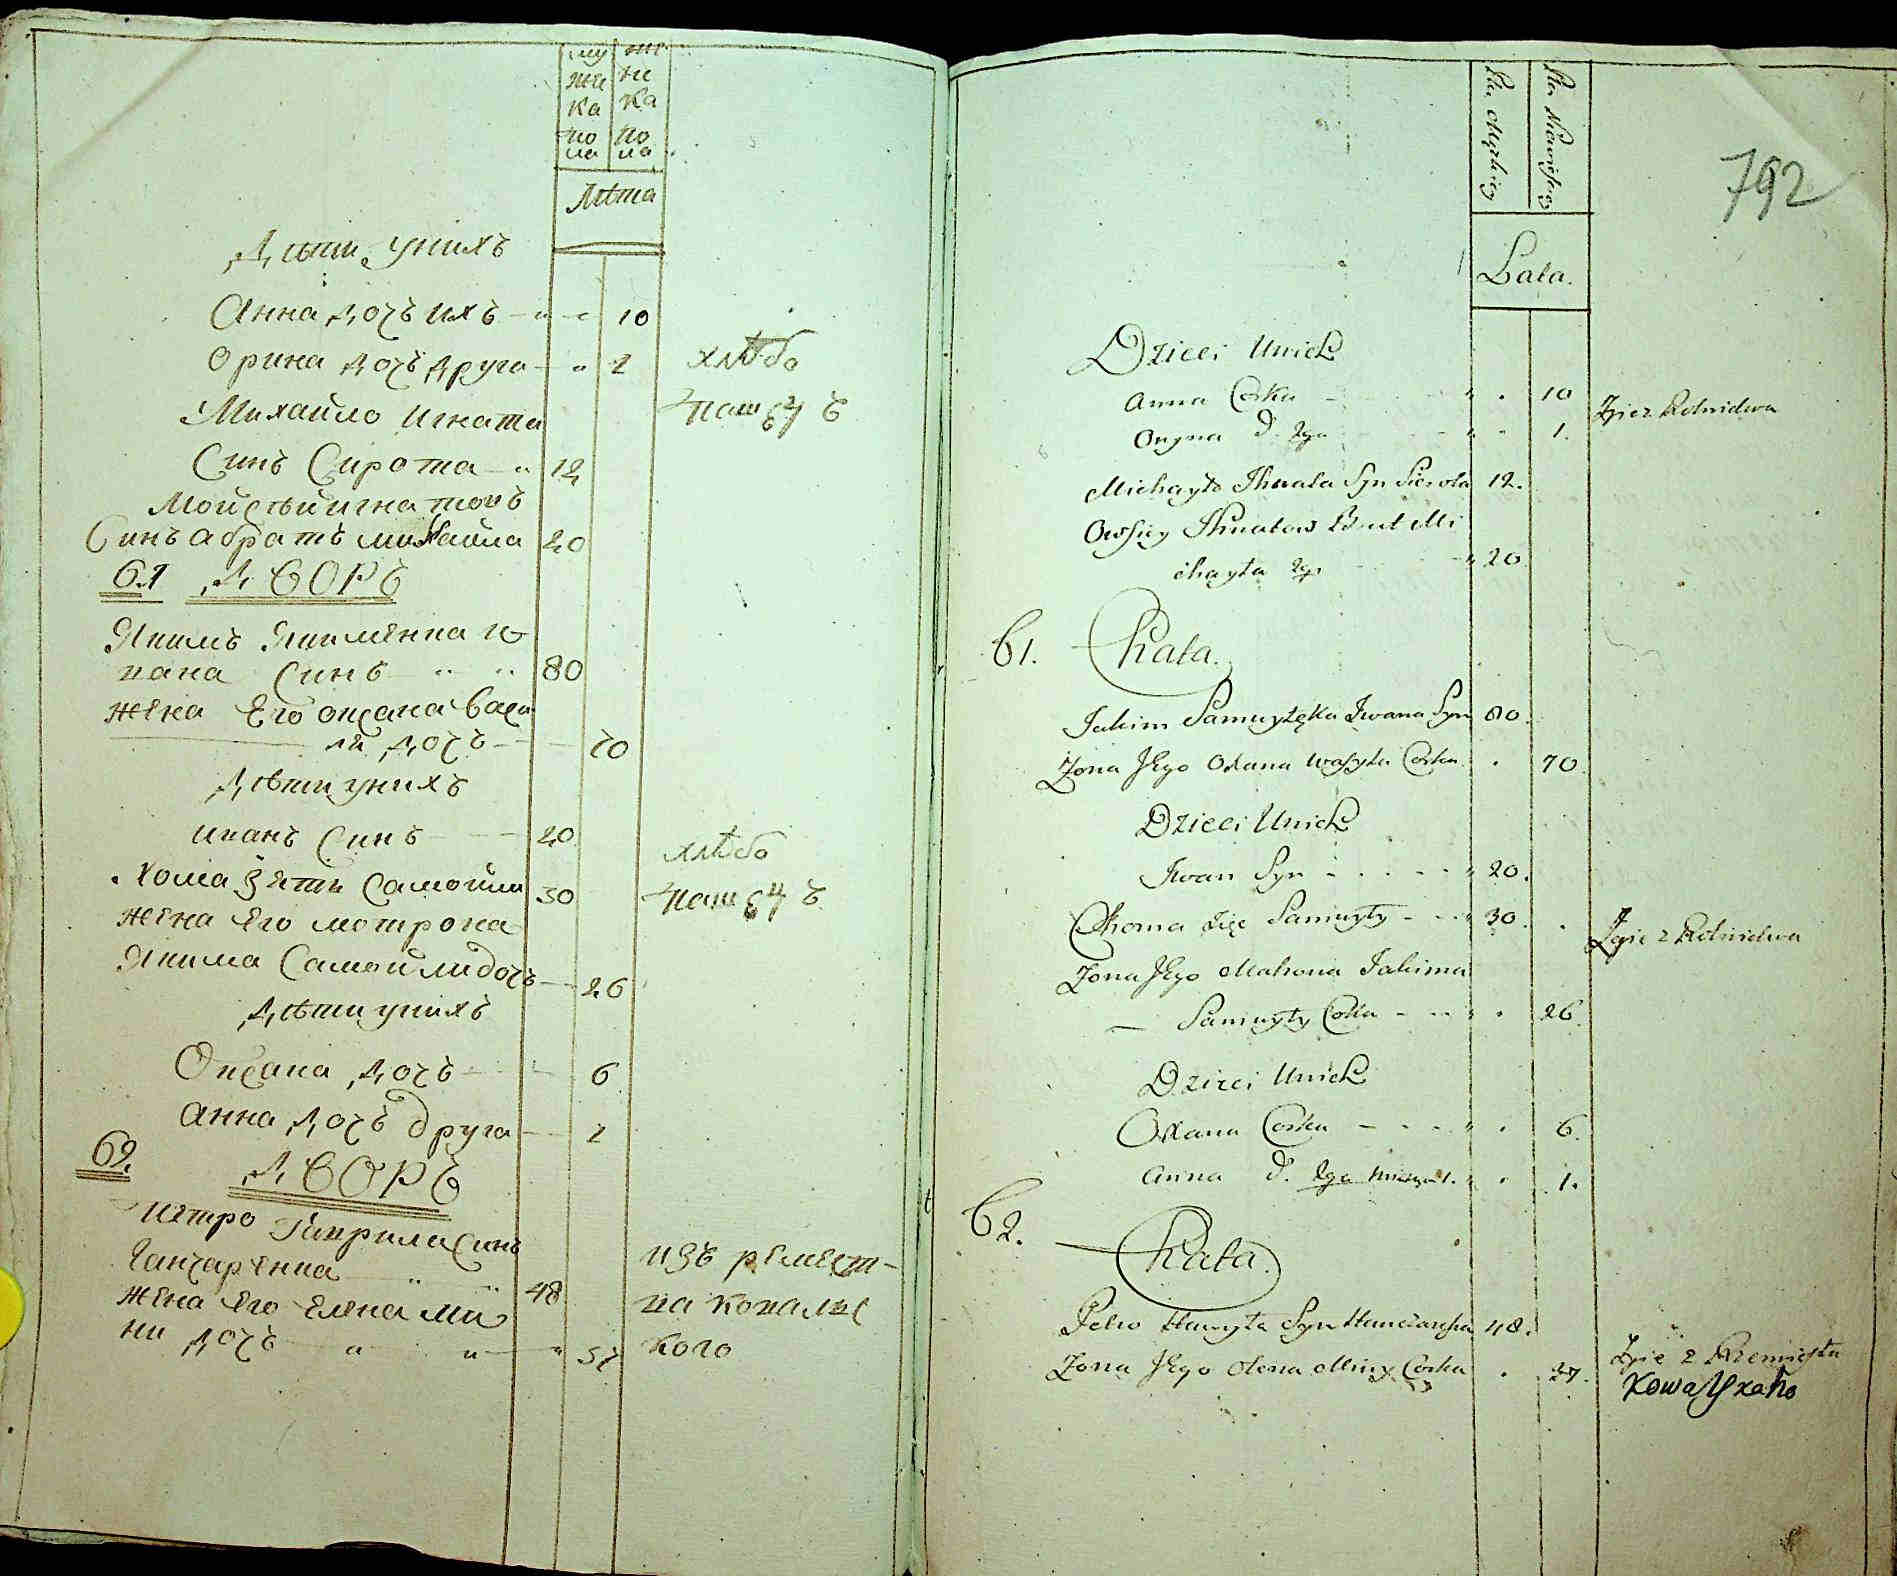 му же ка по ла
же не ка по ла
Лѣта
Дѣти у нихъ
Анна дочъ ихъ 10
Орина дочъ друга 2
хлѣбо
пашецъ
Михайло Игната
Синъ Сирота 12
Мойсѣй игнатовъ
Синъ а братъ михайла 20
61 ДВОРЪ
Якимъ
вана Синъ 80
жена Его оксана Васи
ля дочъ 70
Дѣти у нихъ
иванъ Синъ 20
хлѣбо
пашецъ
хома зять Самойли 30
жена Его мотрона
Якима Самойли дочъ 26
Дѣти у нихъ
Оксана дочъ 6
анна дочъ друга 2
62. ДВОРЪ
петро Гаврила Синъ
Ганчаренка 48
жена Его Елена ми
ни дочъ 37
изъ ремест-
ва ковалс
кого
792
Płci Męzkiey
Płci Niewieściey
Lata.
Dzieci Unich
Anna Corka 10
Oryna d. 2ga 1.
Zyie z Rolnictwa
Michayło Ihnata Syn Sierota 12.
Ihnatow Brat Mi
chayła 20
61. Chata.
Jakim Iwana Syn 80.
Zona Jego Oxana Wasyla Corka 70
Dzieci Unich
Iwan Syn 20.
Choma Zięć Samuyły 30.
Zyie z Rolnictwa
Zona Jego Matrona Jakima
Samuyły Corka 26.
Dzieci Unich
Oxana Corka 6.
Anna d. 2ga 1.
62. Chata.
Petro Hawryła Syn Hanczarenka 48.
Zona Jego Olena Miny Corka 37.
Zyie z Rzemięsła
Kowalskaho